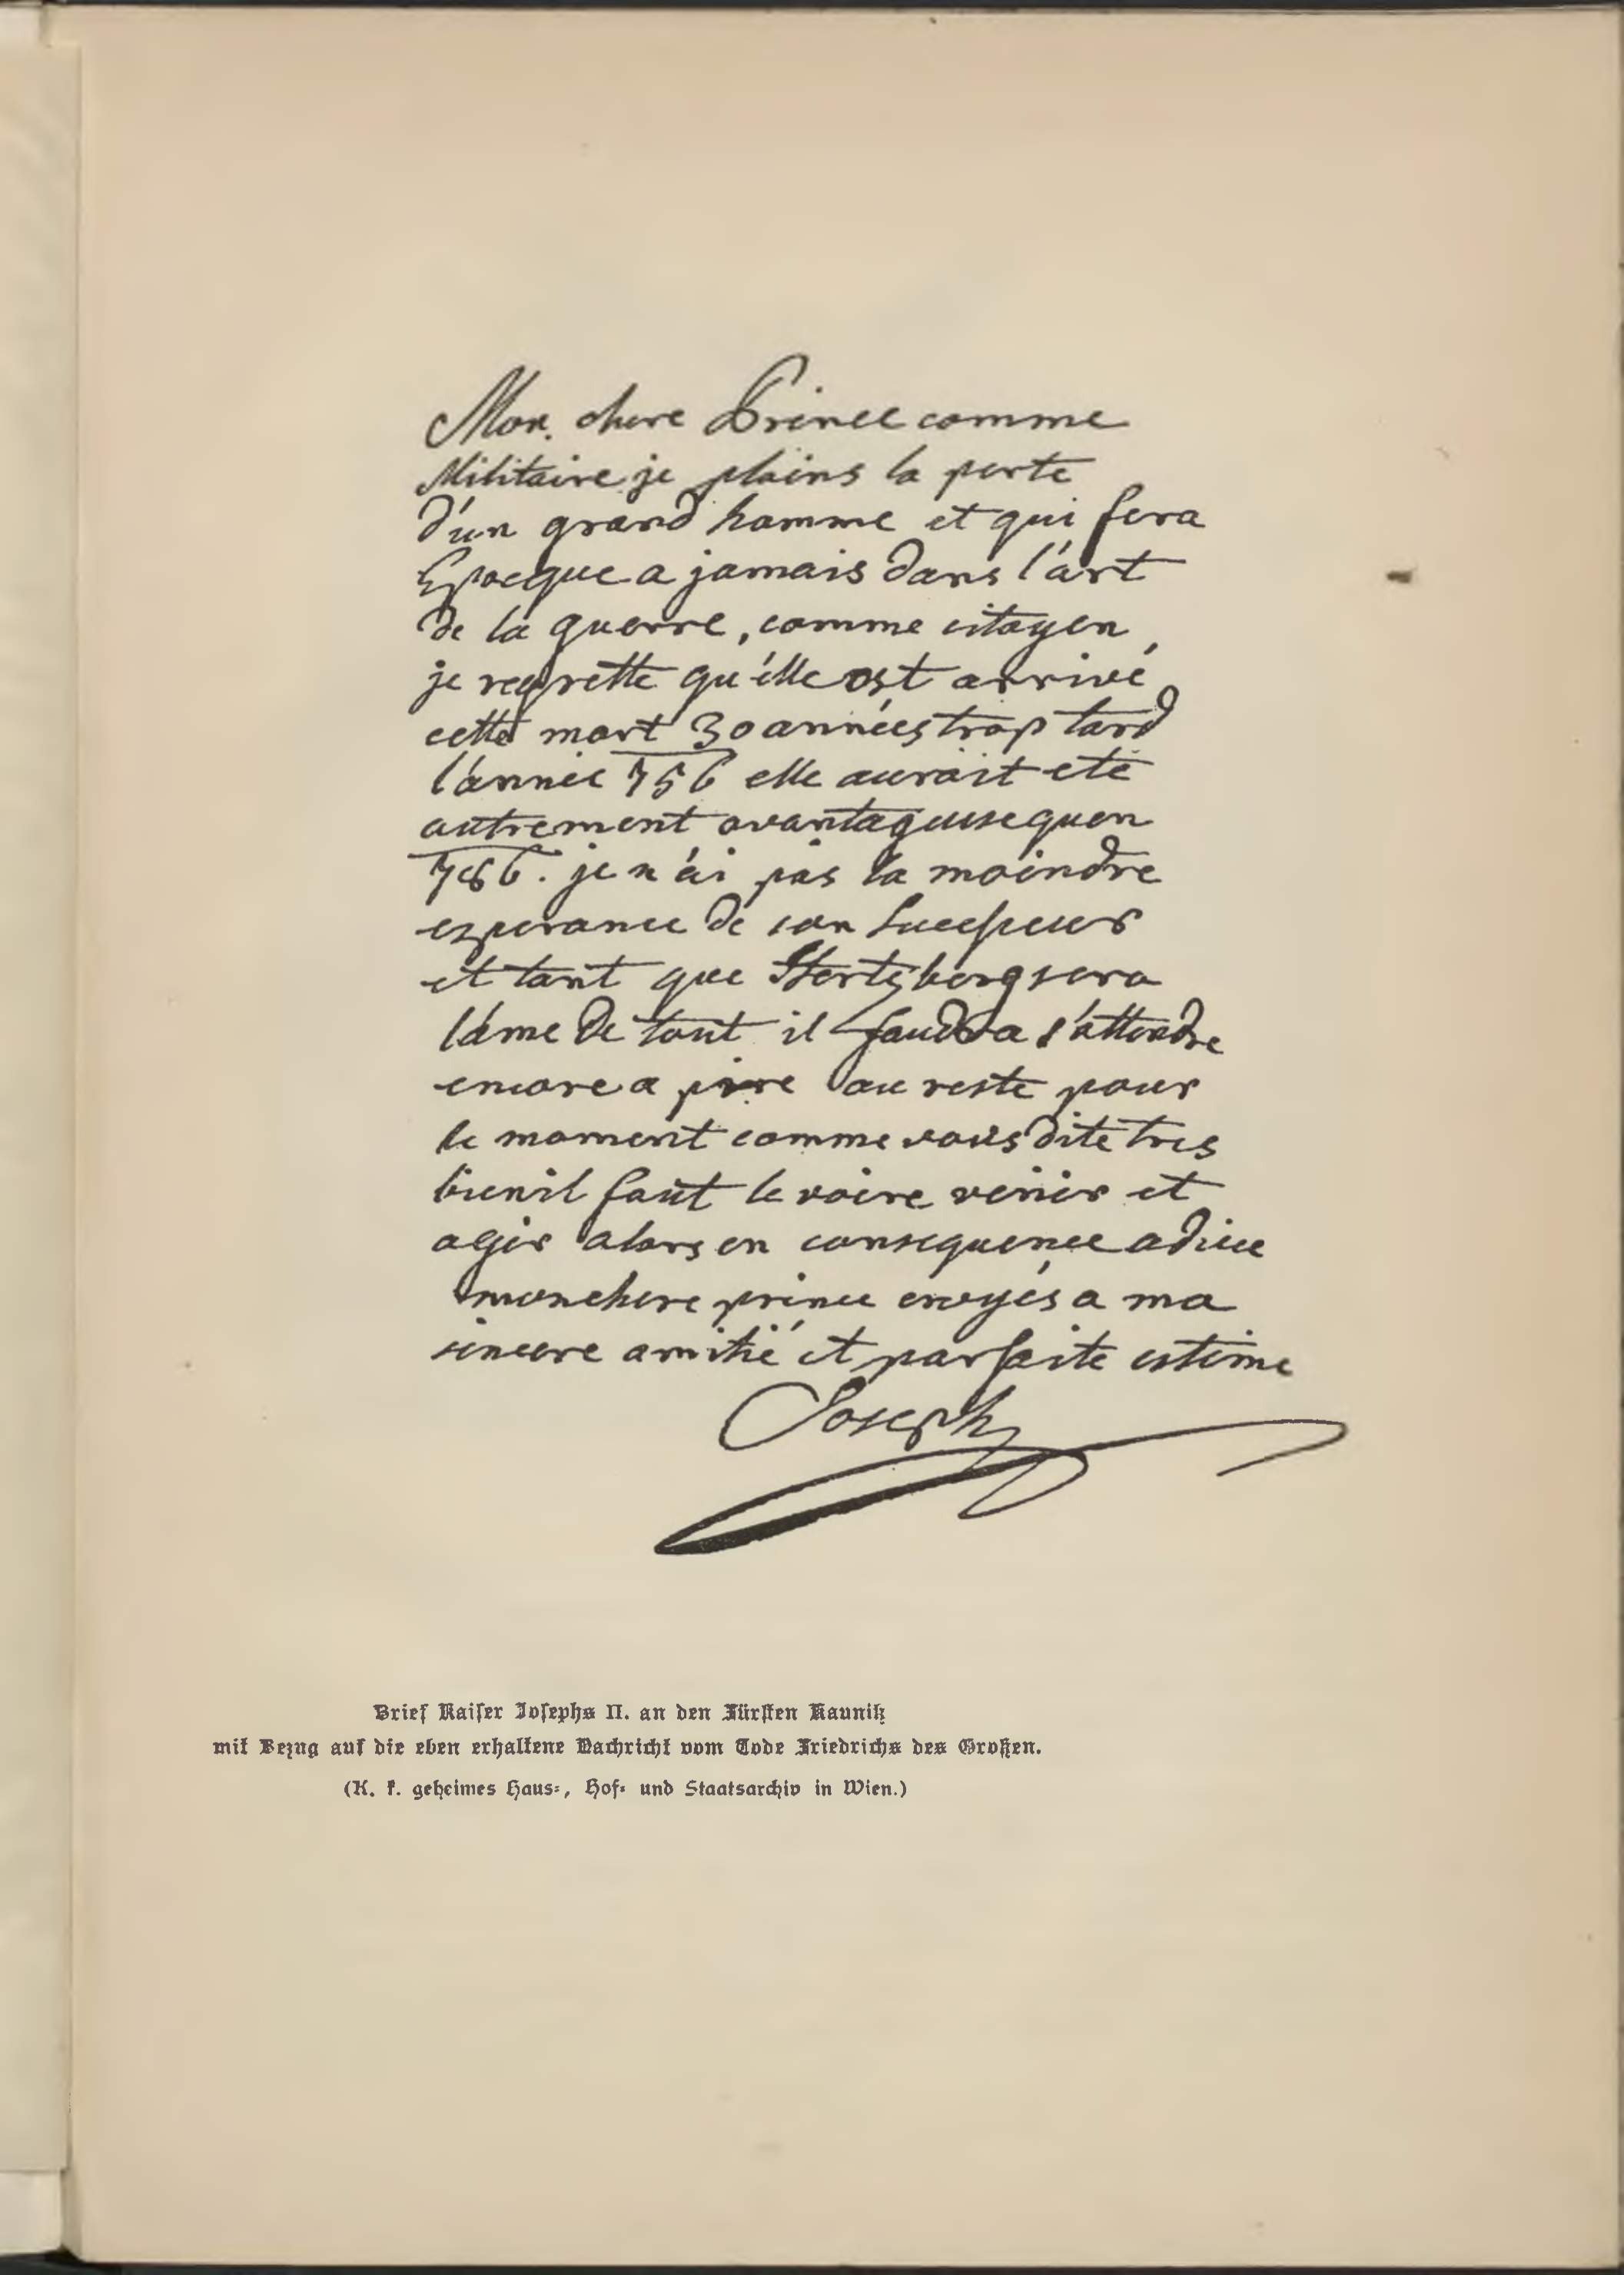 Mon chere Prince comme
Militaire je plains la perte
d'un grand homme et qui fera
Epocque a jamais dans l'art
de la guerre, comme citoyen
je regrette qu'elle est arrivé
cette mort 30 années trop tard
l'année 756 elle aurait eté
autrement avantageuse quen
786. je n'ai pas la moindre
esperance de son Successeur
et tant que Hertzberg sera
l'ame de tout il faudra s'attendre
encore a pire au reste pour
le moment comme vous dite tres
bien il faut le voire venir et
agir alors en consequence adieu
mon chere prince croyés a ma
sincere amitié et parfaite estime
Joseph
Brief Kaiser Josephs II. an den Fürsten Kaunitz
mit Bezug auf die eben erhaltene Nachricht vom Tode Friedrichs des Großen.
(K. k. geheimes Haus-, Hof- und Staatsarchiv in Wien.)